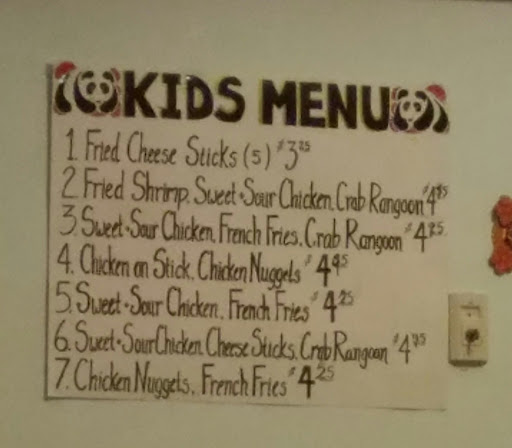 KIDS MENU
1. Fried Cheese Sticks (5) $3
2. Fried Shrimp, Sweet-Sour Chicken, Crab Rangoon $4.95
3. Sweet-Sour Chicken, French Fries, Crab Rangoon $4.85
4. Chicken on Stick, Chicken Nuggets $4.95
5. Sweet-Sour Chicken, French Fries $4.25
6. Sweet-Sour Chicken, Cheese Sticks, Crab Rangoon $4
7. Chicken Nuggets, French Fries $4.25